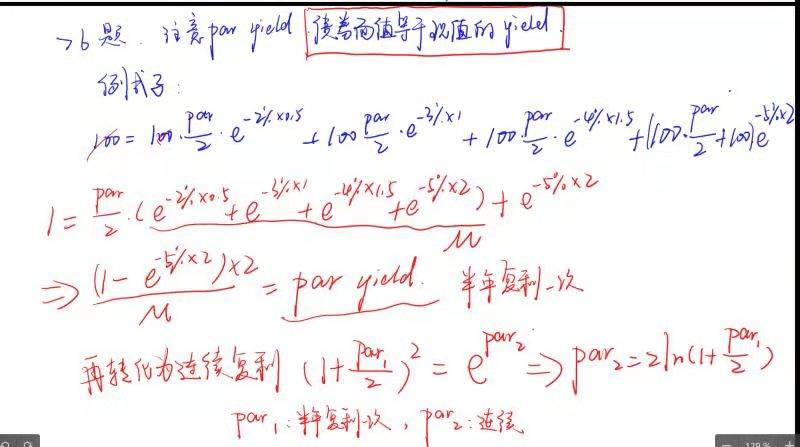 76题. 注意par yield 债券面值等于现值的yield.
列式子:
100 = 100·par/2·e^{-2%×0.5} + 100 par/2·e^{-3%×1} + 100·par/2·e^{-4%×1.5} + (100·par/2+100)e^{-5%×2}
1 = par/2·(e^{-2%×0.5}+e^{-3%×1}+e^{-4%×1.5}+e^{-5%×2}) + e^{-5%×2}
M
⇒ (1-e^{-5%×2})×2/M = par yield. 半年复利一次
再转化为连续复利 (1+par₁/2)² = e^{par₂} ⇒ par₂=2ln(1+par₁/2)
par₁:半年复利一次, par₂:连续
129%